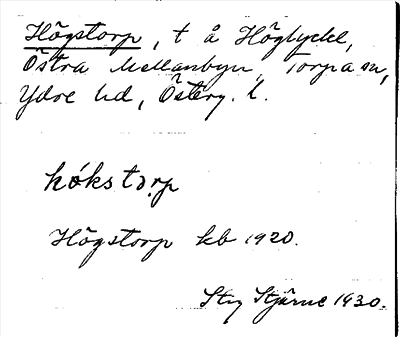 Högstorp, t å Höglycke,
Östra Mellanbyn, Torpa sn,
Ydre hd, Österg. l.
hökstɔrp
Högstorp kb 1920.
Stig Stjärne 1930.